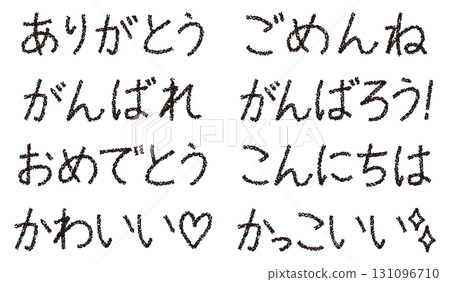 ありがとう ごめんね
がんばれ がんばろう!
おめでとう こんにちは
かわいい♡ かっこいい✧
PIXTA
pixta.jp - 131096710